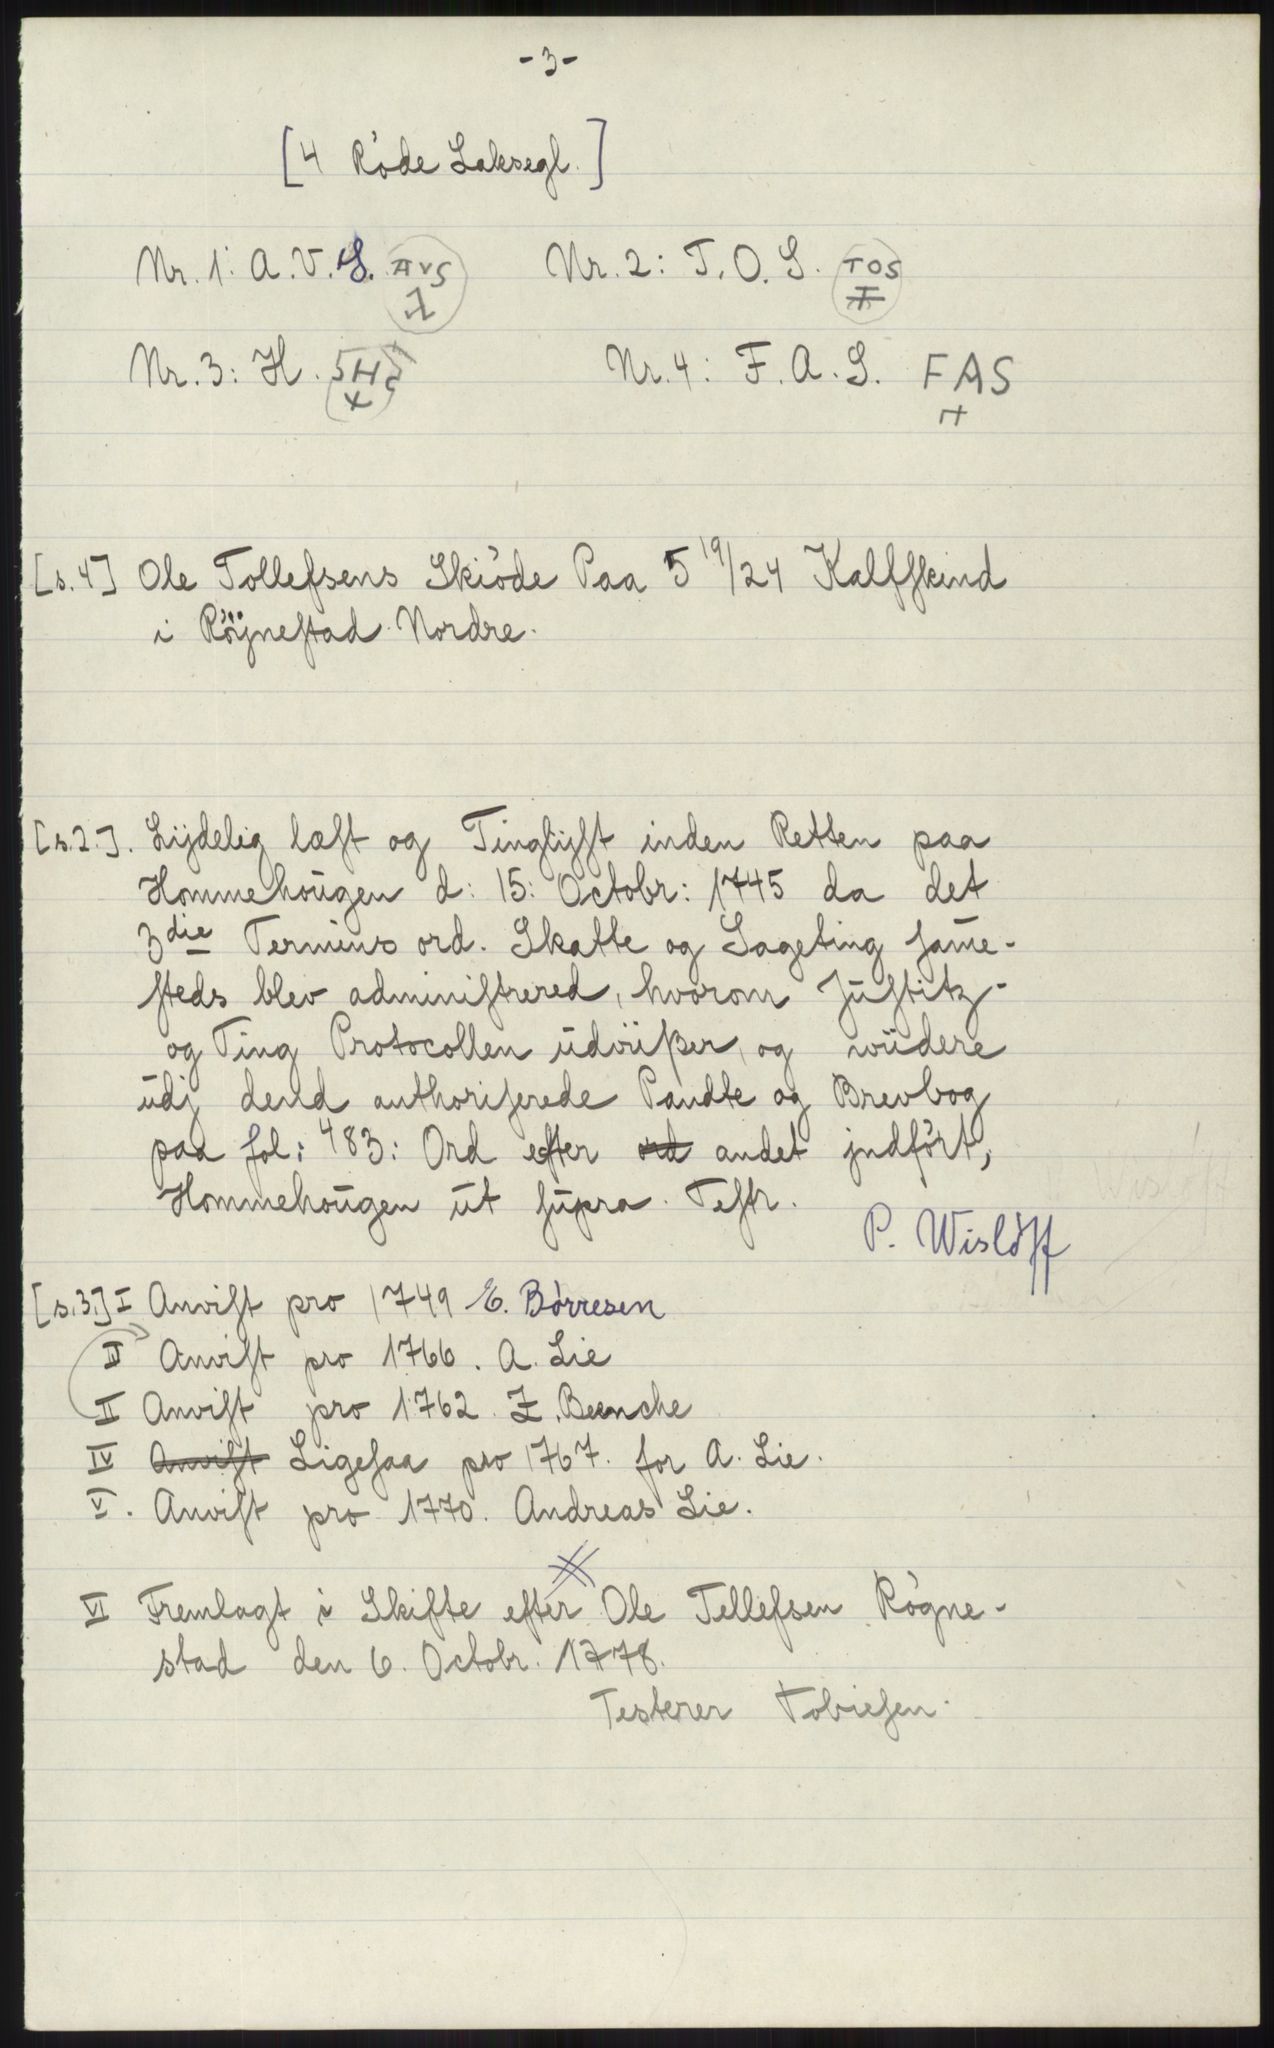 -3-
[4 Røde Laksegl.]
Nr. 1: A. V. S. AVS Nr. 2: T. O. S. TOS
Nr. 3: H. SHS Nr. 4: F. A. S. FAS
[s.4] Ole Tollefsens Skiøde Paa 5 19/24 Kalfskind
i Røÿnestad Nordre.
[s.2.]. Lÿdelig læst og Tinglÿst inden Retten paa
Hommehoŭgen d: 15: Octobr: 1745 da det
3die Termins ord. Skatte og Sageting sam̄e-
steds blev administrered, hvorom Jŭstitz-
og Ting Protocollen ŭdviißer, og wiidere
ŭdj dend authoriserede Pandte og Brevbog
paa fol: 483: Ord efter ord andet jndført,
Hommehoŭgen ŭt sŭpra. Testr.
P. Wisløff
[s.3.] I Anvist pro 1749 E. Børresen
III Anvist pro 1766. A. Lie
II Anvist pro 1762. Z. Bunche
IV Anvist Ligesaa pro 1767. for A. Lie.
V. Anvist pro 1770. Andreas Lie.
VI Fremlagt i Skifte efter Ole Tellefsen Røgne-
stad den 6. Octobr. 1778.
Testerer Tobiesen.